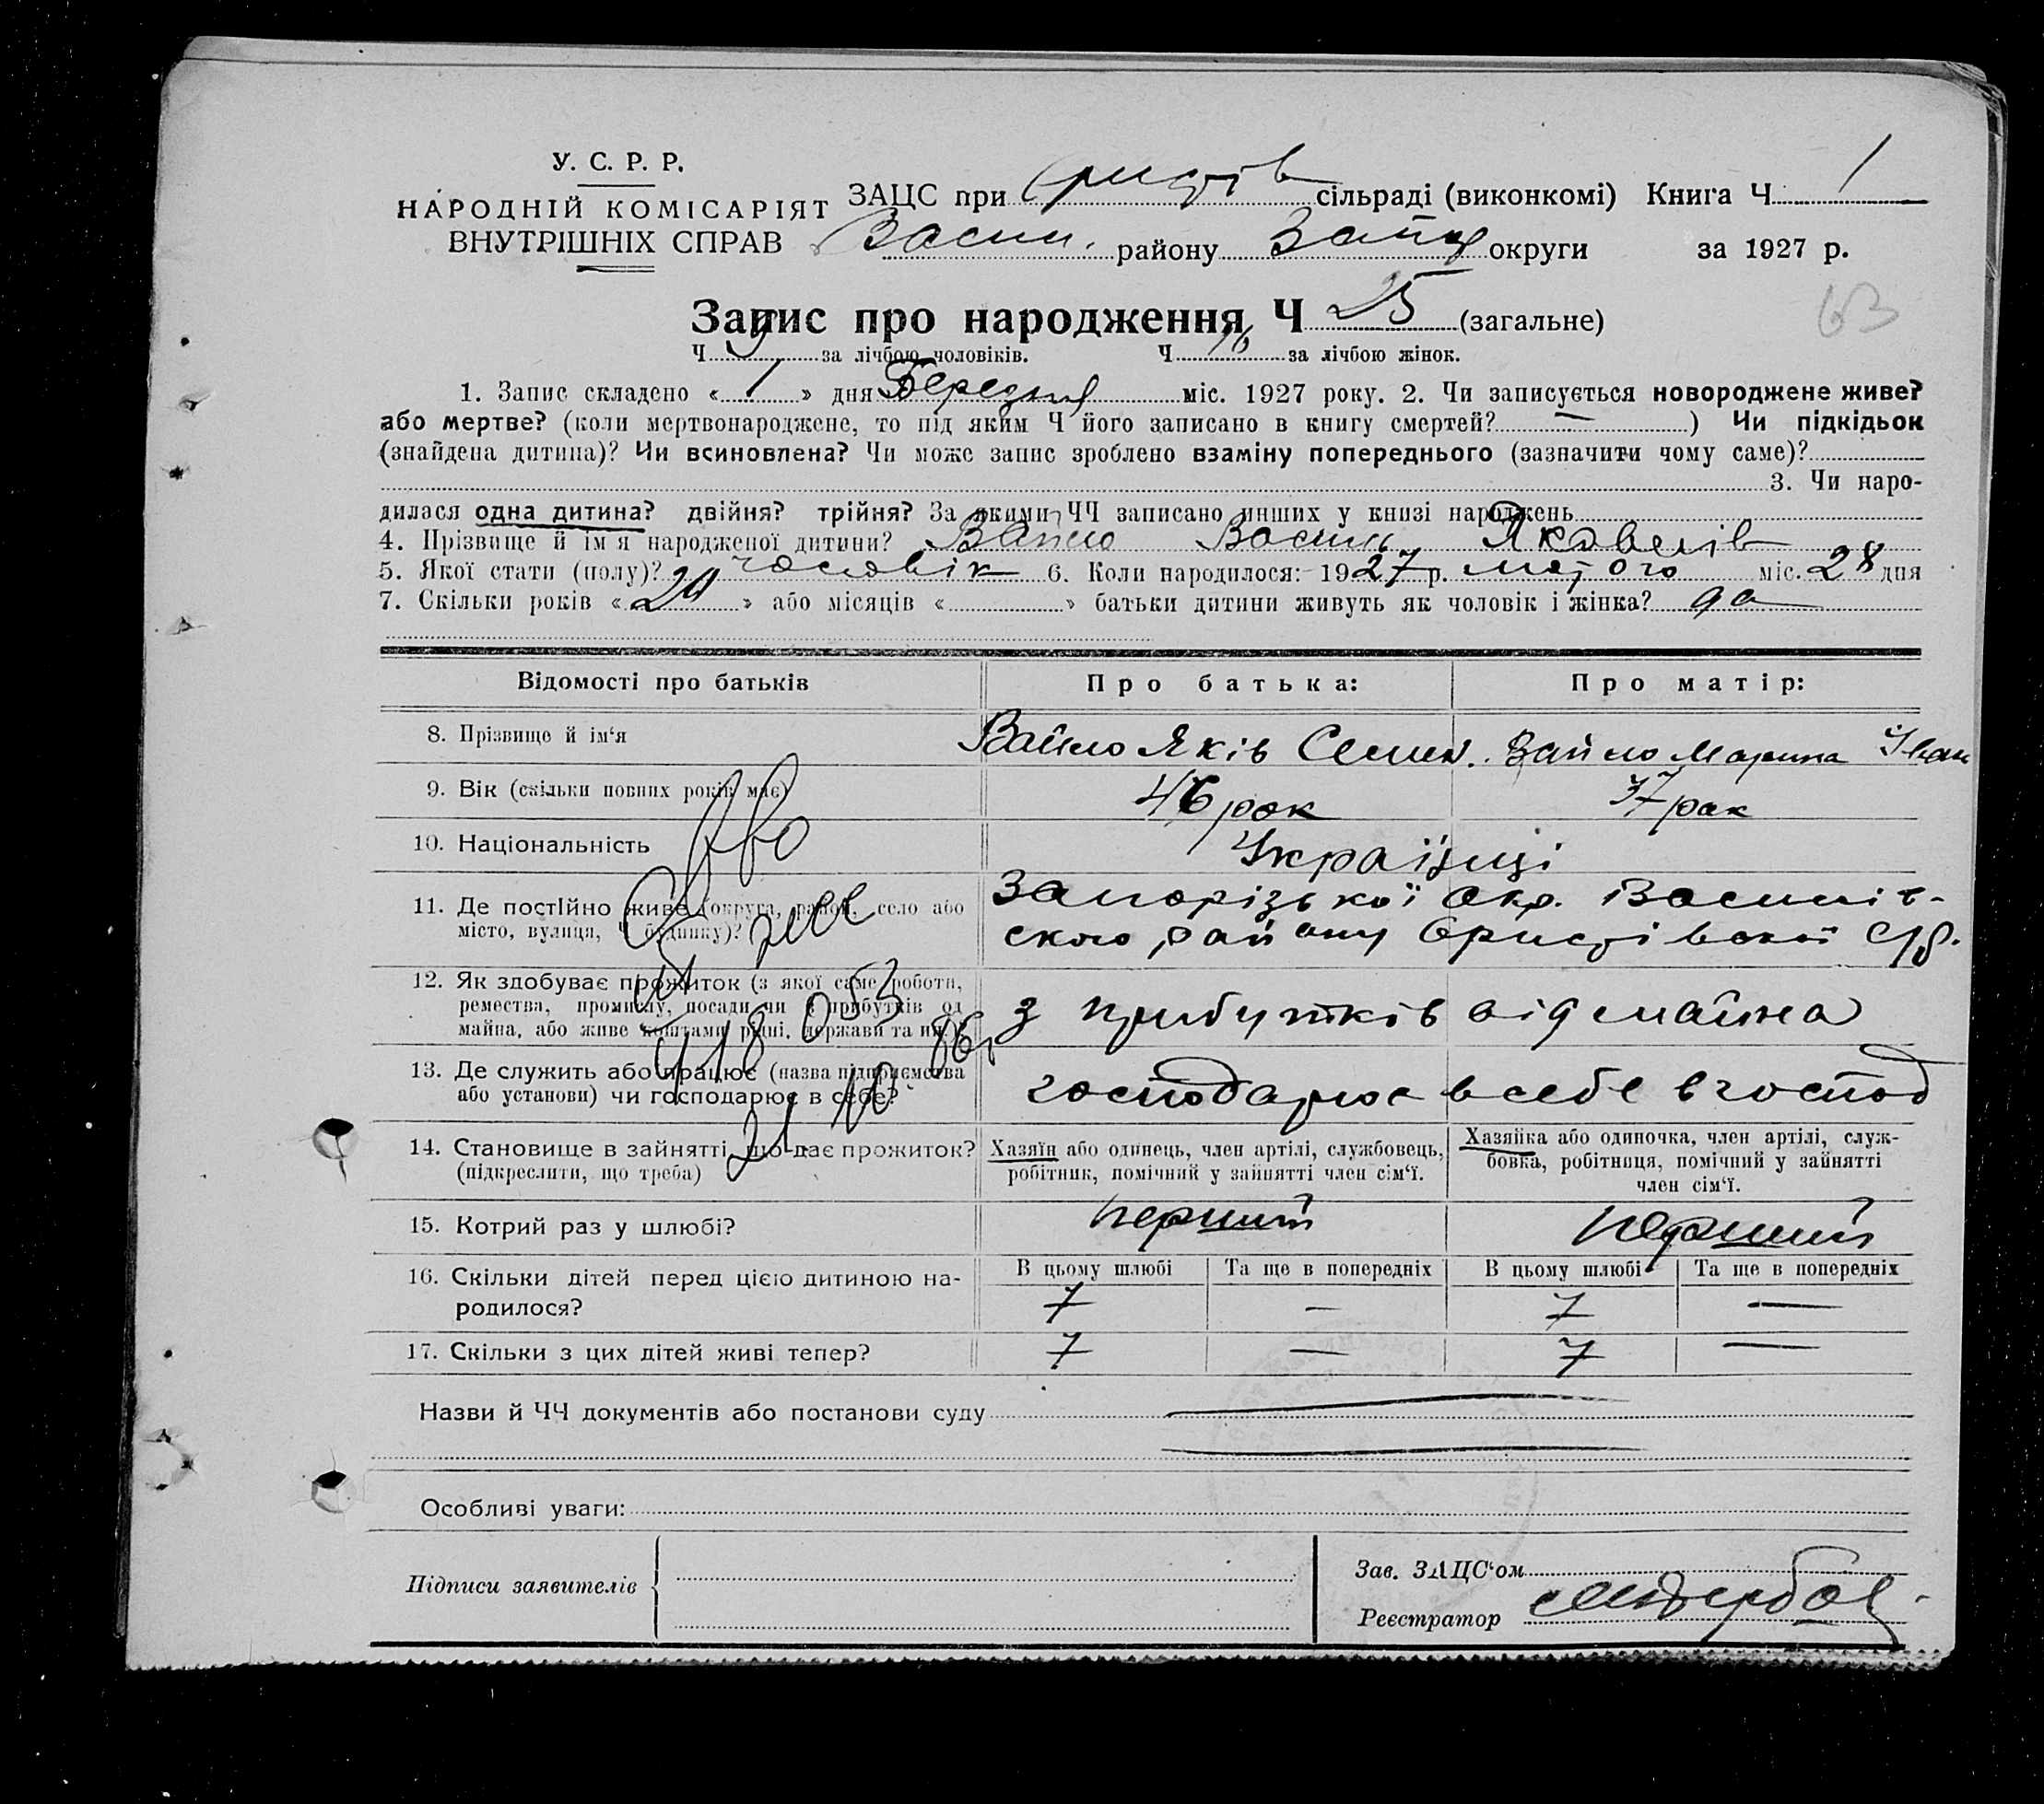 У. С. Р. Р.
НАРОДНІЙ КОМІСАРІЯТ
ВНУТРІШНІХ СПРАВ
ЗАЦС при сільраді (виконкомі) Книга Ч 1
Васил. району Запор округи за 1927 р.
63
Запис про народження Ч 25 (загальне)
Ч 9 за лічбою чоловіків. Ч 16 за лічбою жінок.
1. Запис складено « 1 » дня Березня міс. 1927 року. 2. Чи записується новороджене живе?
або мертве? (коли мертвонароджене, то під яким Ч його записано в книгу смертей? — ) Чи підкідьок
(знайдена дитина)? Чи всиновлена? Чи може запис зроблено взаміну попереднього (зазначити чому саме)?
3. Чи наро-
дилася одна дитина? двійня? трійня? За якими ЧЧ записано инших у книзі народжень
4. Прізвище й ім'я народженої дитини? Вайло Василь Яковелів
5. Якої стати (полу)? чоловік 6. Коли народилося: 1927 р. лютого міс. 28 дня
7. Скільки років « 20 » або місяців « » батьки дитини живуть як чоловік і жінка? да
Відомості про батьків Про батька: Про матір:
8. Прізвище й ім'я Вайло Яків Семен. Вайло Марина Іван
9. Вік (скільки повних років має) 46 рок 37 рок
10. Національність Українці
11. Де постійно живе (округа, район, село або Запорізької окр. Василів-
місто, вулиця, Ч будинку)? ского району
12. Як здобуває прожиток (з якої саме роботи,
ремества, промислу, посади чи з прибутків од з прибутків від майна
майна, або живе коштами рідні, держави та ин.)?
13. Де служить або працює (назва підприємства господарює в себе в господ
або установи) чи господарює в себе?
14. Становище в зайнятті, що дає прожиток? Хазяїн або одинець, член артілі, службовець, Хазяйка або одиночка, член артілі, служ-
(підкреслити, що треба) робітник, помічний у зайнятті член сім'ї. бовка, робітниця, помічний у зайнятті
член сім'ї.
15. Котрий раз у шлюбі? перший перший
16. Скільки дітей перед цією дитиною на- В цьому шлюбі Та ще в попередніх В цьому шлюбі Та ще в попередніх
родилося? 7 — 7 —
17. Скільки з цих дітей живі тепер? 7 — 7 —
Назви й ЧЧ документів або постанови суду
Особливі уваги:
Підписи заявителів
Зав. ЗАЦС'ом
Реєстратор